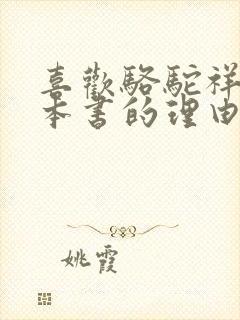 喜歡駱駝祥
本書的理由
姚霞